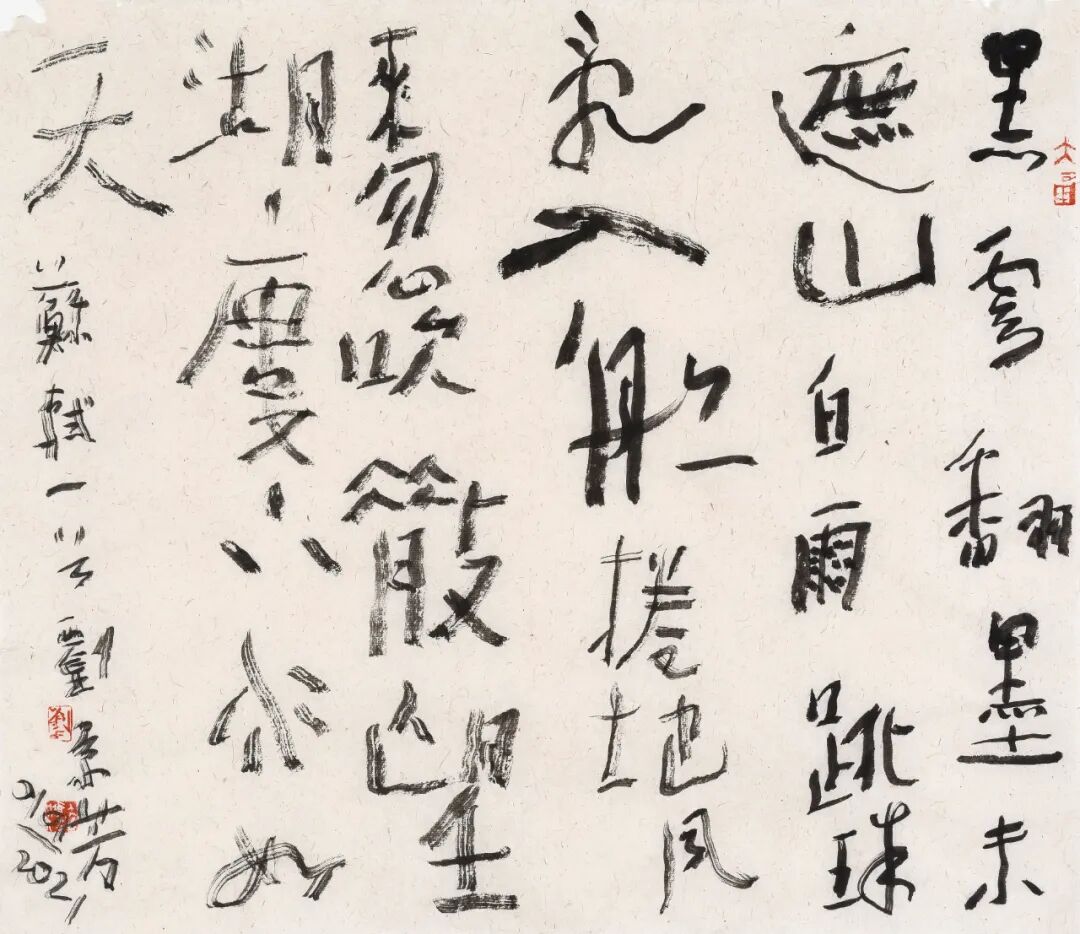 黑雲翻墨未
遮山白雨跳珠
亂入船捲地風
來忽吹散望
湖樓下水如
天
蘇軾一首
2021